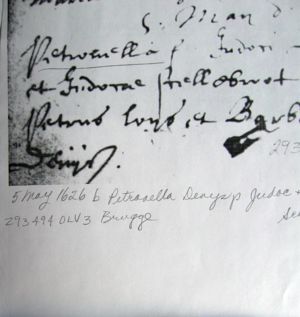 S. Man d
Petronella f Judoci
et Judocae Hellebuot
Petrus loys et Barb
Denijs.
293
5 May 1626 b Petronella Denys p Judoc +
293494 OLV 3 Brugge